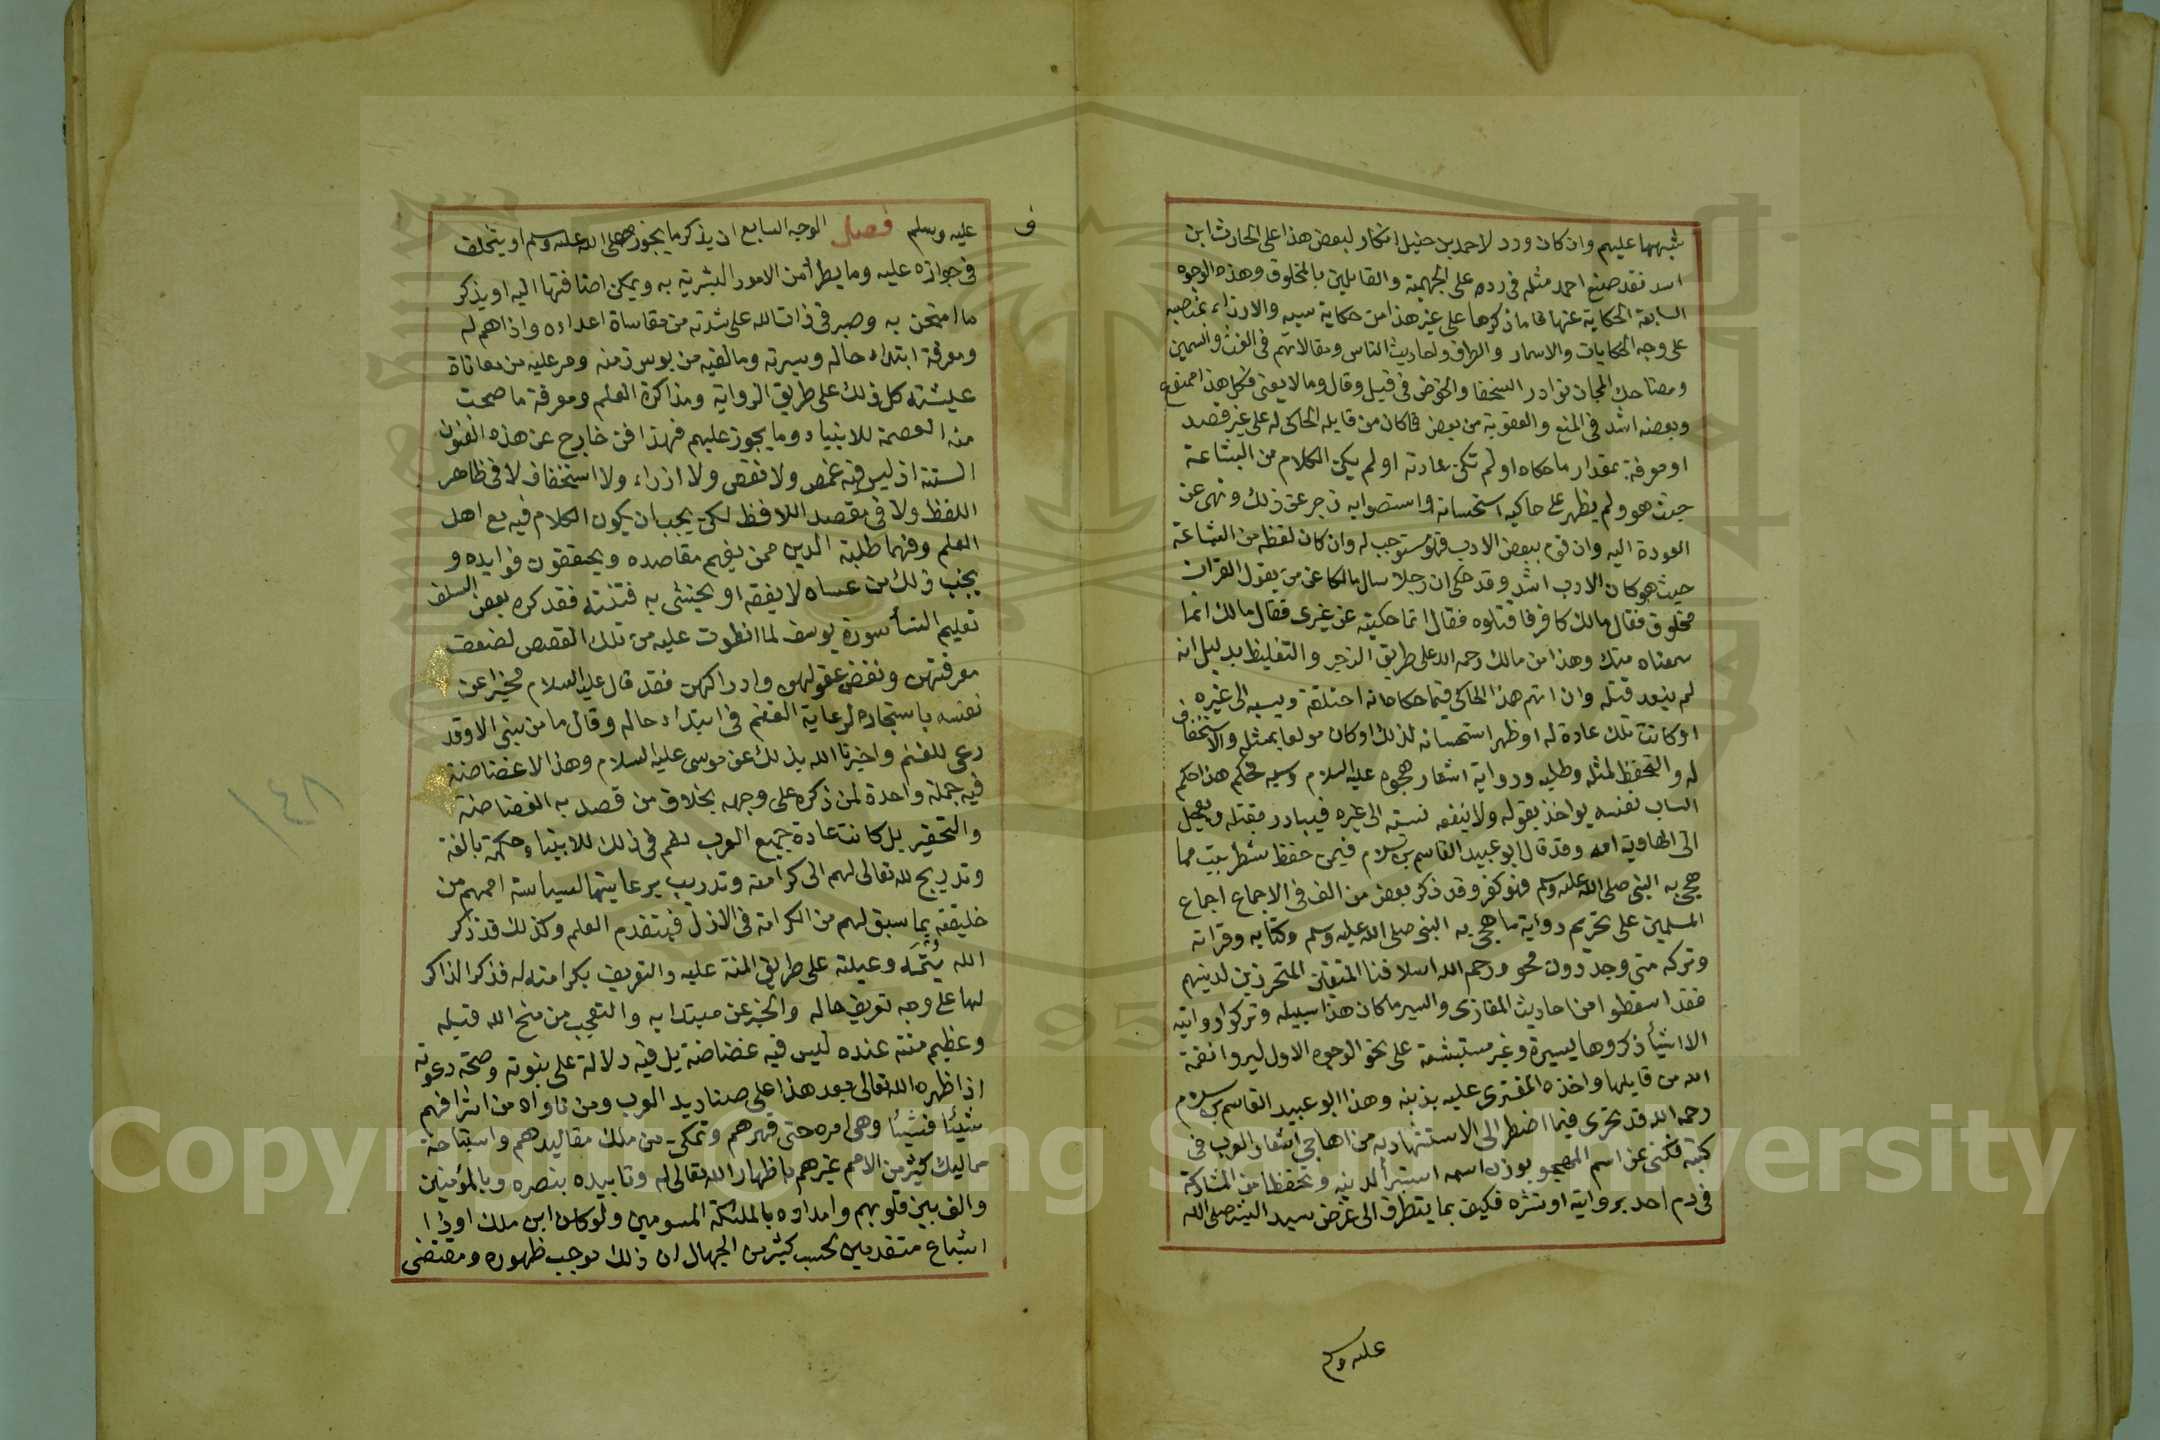 شبهها عليهم وان كان ورد لاحمد بن حنبل انكار لبعض هذا على الحارث ابن
اسد فقد صنع احمد مثله فى رده على الجهمية والقايلين بالمخلوق وهذه الوجوه
السابعة الحكاية عنها فاما ذكرها على غير هذا من حكاية سبه والازراء بمنصبه
على وجه الحكايات والاسمار والطرف واحاديث الناس ومقالاتهم فى الغث والسمين
ومضاحك المجان نوادر السخفا والخوض فى قيل وقال وما لا يعنى فكل هذا ممنوع
وبعضه اشد فى المنع والعقوبة من بعض فما كان من قايله الحاكى له على غير قصد
او معرفة بمقدار ما حكاه او لم تكن عادته او لم يكن الكلام من البشاعة
حيث هو ولم يظهر على حاكيه استحسانه واستصوابه زجر عن ذلك ونهى عن
العودة اليه وان قوم ببعض الادب فهو مستوجب له وان كان لفظه من البشاعة
حيث هو كان الادب اشد وقد حكى ان رجلا سال مالكا عن من يقول القران
مخلوق فقال مالك كافر فاقتلوه فقال انما حكيته عن غيرى فقال مالك انما
سمعناه منك وهذا من مالك رحمه الله على طريق الزجر والتغليظ بدليل انه
لم ينفد قتله وان اتهم هذا الحاكى فيما حكاه انه اختلقه ونسبه الى غيره
او كانت تلك عادة له او ظهر استحسانه لذلك او كان مولعا بمثله والاستخفاف
له والتحفظ لمثله وطلبه ورواية اشعار هجوه عليه السلام وسبه فحكم هذا حكم
الساب نفسه يواخذ بقوله ولا ينفعه نسبته الى غيره فيبادر بقتله ويعجل
الى الهاوية امه وقد قال ابو عبيد القاسم بن سلام فيمن حفظ شطر بيت مما
هجى به النبى صلى الله عليه وسلم فهو كفر وقد ذكر بعض من الف فى الاجماع اجماع
المسلمين على تحريم رواية ما هجى به النبى صلى الله عليه وسلم وكتابه وقراته
وتركه متى وجد دون محو ورحم الله اسلافنا المتقين المتحرزين لدينهم
فقد اسقطوا من احاديث المغازى والسير ما كان هذا سبيله وتركوا روايته
الا اشيأ ذكروها يسيرة وغير مستبشعة على نحو الوجوه الاول ليروا نقمة
الله من قايلها واخذه المفترى عليه بذنبه وهذا ابو عبيد القاسم بن سلام
رحمه الله قد تحرى فيما اضطر الى الاستشهاد به من اهاجى اشعار العرب فى
كتبه فكنى عن اسم المهجو بوزن اسمه استبرأ لدينه وتحفظا من المشاركة
فى ذم احد بروايته او نشره فكيف بما يتطرق الى عرض سيد البشر صلى الله
عليه وسلم
ف
عليه وسلم فصل الوجه السابع ان يذكر ما يجوز على صلى الله عليه وسلم او يختلف
فى جوازه عليه وما يطرأ من الامور البشرية به ويمكن اضافتها اليه او يذكر
ما امتحن به وصبر فى ذات الله على شدته من مقاساة اعداءه واذاهم له
ومعرفة ابتداء حاله وسيرته وما لقيه من بوس زمنه ومر عليه من معاناة
عيشته كل ذلك على طريق الرواية ومذاكرة العلم ومعرفة ما صحت
منه العصمة للانبياء وما يجوز عليهم فهذا فن خارج عن هذه الفنون
الستة اذ ليس فيه غمص ولا نقص ولا ازراء ولا استخفاف لا فى ظاهر
اللفظ ولا فى مقصد اللافظ لكن يجب ان يكون الكلام فيه مع اهل
العلم وفهما طلبة الدين ممن يفهم مقاصده ويحققون فوايده و
يجنب ذلك من عساه لا يفقه او يخشى به فتنته فقد كره بعض السلف
تعليم النسأ سورة يوسف لما انطوت عليه من تلك القصص لضعف
معرفتهن ونقض عقولهن وادراكهن فقد قال عليه السلام مخبرا عن
نفسه باستجاره لرعاية الغنم فى ابتداء حاله وقال ما من نبى الا وقد
رعى للغنم واخبرنا الله بذلك عن موسى عليه السلام وهذا لا غضاضة
فيه جملة واحدة لمن ذكره على وجهه بخلاف من قصد به الغضاضة
والتحقير بل كانت عادة جميع العرب نعم فى ذلك للانبياء حكمة بالغة
وتدريج لله تعالى لهم الى كرامته وتدريب برعايتها لسياسة اممهم من
خليقته بما سبق لهم من الكرامة فى الازل فيتقدم العلم وكذلك قد ذكر
الله يُتْمَه وعيلته على طريق المنة عليه والتعريف بكرامته له فذكر الذاكر
لها على وجه تعريف حاله والخبر عن مبتدايه والتعجب من منح الله قبله
وعظيم منته عنده ليس فيه غضاضة بل فيه دلالة على نبوته وصحة دعوته
اذ اظهره الله تعالى بعد هذا على صناديد العرب ومن ناواه من اشرافهم
شيئا فشيئا وهى امره حتى قهرهم وتمكن من ملك مقاليدهم واستباحة
مماليك كثير من الامم غيرهم باظهار الله تعالى له وتاييده بنصره وبالمؤمنين
والف بين قلوبهم وامداده بالملئكة المسومين ولو كان ابن ملك او ذا
اشياع متقدمين لحسب كثير من الجهال ان ذلك موجب ظهوره ومقتضى
١٤٨
Copyright © King Saud University
1957